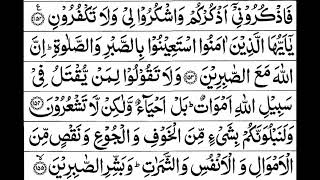 فَاذْكُرُوْنِیْۤ اَذْكُرْكُمْ وَ اشْكُرُوْا لِیْ وَ لَا تَكْفُرُوْنِ ﴿۱۵۲﴾
یٰۤاَیُّهَا الَّذِیْنَ اٰمَنُوا اسْتَعِیْنُوْا بِالصَّبْرِ وَ الصَّلٰوةِ ؕ اِنَّ
اللّٰهَ مَعَ الصّٰبِرِیْنَ ﴿۱۵۳﴾ وَ لَا تَقُوْلُوْا لِمَنْ یُّقْتَلُ فِیْ
سَبِیْلِ اللّٰهِ اَمْوَاتٌ ؕ بَلْ اَحْیَآءٌ وَّ لٰكِنْ لَّا تَشْعُرُوْنَ ﴿۱۵۴﴾
وَ لَنَبْلُوَنَّكُمْ بِشَیْءٍ مِّنَ الْخَوْفِ وَ الْجُوْعِ وَ نَقْصٍ مِّنَ
الْاَمْوَالِ وَ الْاَنْفُسِ وَ الثَّمَرٰتِ ؕ وَ بَشِّرِ الصّٰبِرِیْنَ ﴿۱۵۵﴾